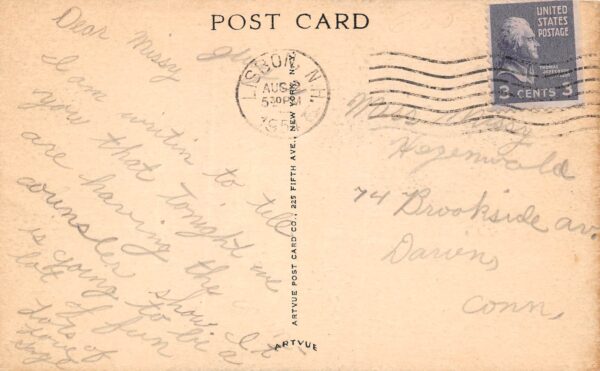 POST CARD
Dear Missy
I am writin to tell
you that tonight we
are having the
counsler show. It
is going to be a
lot of fun
Lots of
Love
LISBON, N.H.
AUG
530PM
UNITED
STATES
POSTAGE
THOMAS JEFFERSON
3 CENTS 3
Miss Missy
Hezenwald
74 Brookside av.
Darien,
Conn.
ARTVUE POST CARD CO., 225 FIFTH AVE., NEW YORK, N.Y.
ARTVUE